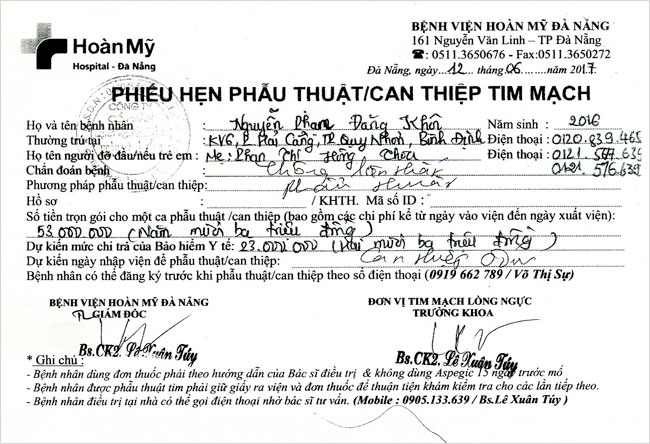 Hoàn Mỹ
Hospital - Đà Nẵng
BỆNH VIỆN HOÀN MỸ ĐÀ NẴNG
161 Nguyễn Văn Linh – TP Đà Nẵng
☎: 0511.3650676 - Fax:0511.3650272
Đà Nẵng, ngày...12...tháng.06.....năm 2017
PHIẾU HẸN PHẪU THUẬT/CAN THIỆP TIM MẠCH
Họ và tên bệnh nhân : Nguyễn Phạm Đăng Khôi Năm sinh : 2016
Thường trú tại : KV6, P. Hải Cảng, TP Quy Nhơn, Bình Định Điện thoại : 0120.839.465
Họ tên người đỡ đầu/nếu trẻ em : Mẹ: Phan Thị Hồng Điện thoại : 0121.
Chẩn đoán bệnh : Thông liên thất 576.639
Phương pháp phẫu thuật/can thiệp : Phẫu thuật
Hồ sơ : / KHTH. Mã số ID :
Số tiền trọn gói cho một ca phẫu thuật /can thiệp (bao gồm các chi phí kể từ ngày vào viện đến ngày xuất viện):
53.000.000 (Năm mươi ba triệu đồng)
Dự kiến mức chi trả của Bảo hiểm Y tế: 23.000.000 (Hai mươi ba triệu đồng)
Dự kiến ngày nhập viện để phẫu thuật/can thiệp:
Bệnh nhân có thể đăng ký trước khi phẫu thuật/can thiệp theo số điện thoại (0919 662 789 / Võ Thị Sự)
BỆNH VIỆN HOÀN MỸ ĐÀ NẴNG
GIÁM ĐỐC
Bs.CK2. Lê Xuân Túy
ĐƠN VỊ TIM MẠCH LỒNG NGỰC
TRƯỞNG KHOA
Bs.CK2. Lê Xuân Túy
* Ghi chú :
- Bệnh nhân dùng đơn thuốc phải theo hướng dẫn của Bác sĩ điều trị & không dùng Aspegic 15 ngày trước mổ
- Bệnh nhân được phẫu thuật tim phải giữ giấy ra viện và đơn thuốc để thuận tiện khám kiểm tra cho các lần tiếp theo.
- Bệnh nhân điều trị tại nhà có thể gọi điện thoại nhờ bác sĩ tư vấn. (Mobile : 0905.133.639 / Bs.Lê Xuân Túy )